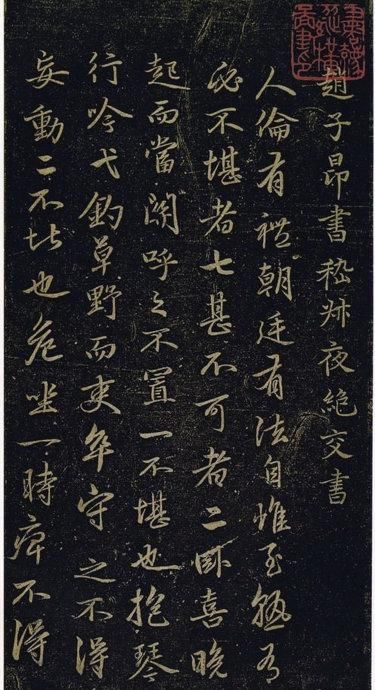 趙子昂書嵇叔夜絶交書
人倫有禮朝廷有法自惟至熟有
必不堪者七甚不可者二卧喜晚
起而當関呼之不置一不堪也抱琴
行吟弋釣草野而吏卒守之不得
妄動二不堪也危坐一時痺不得